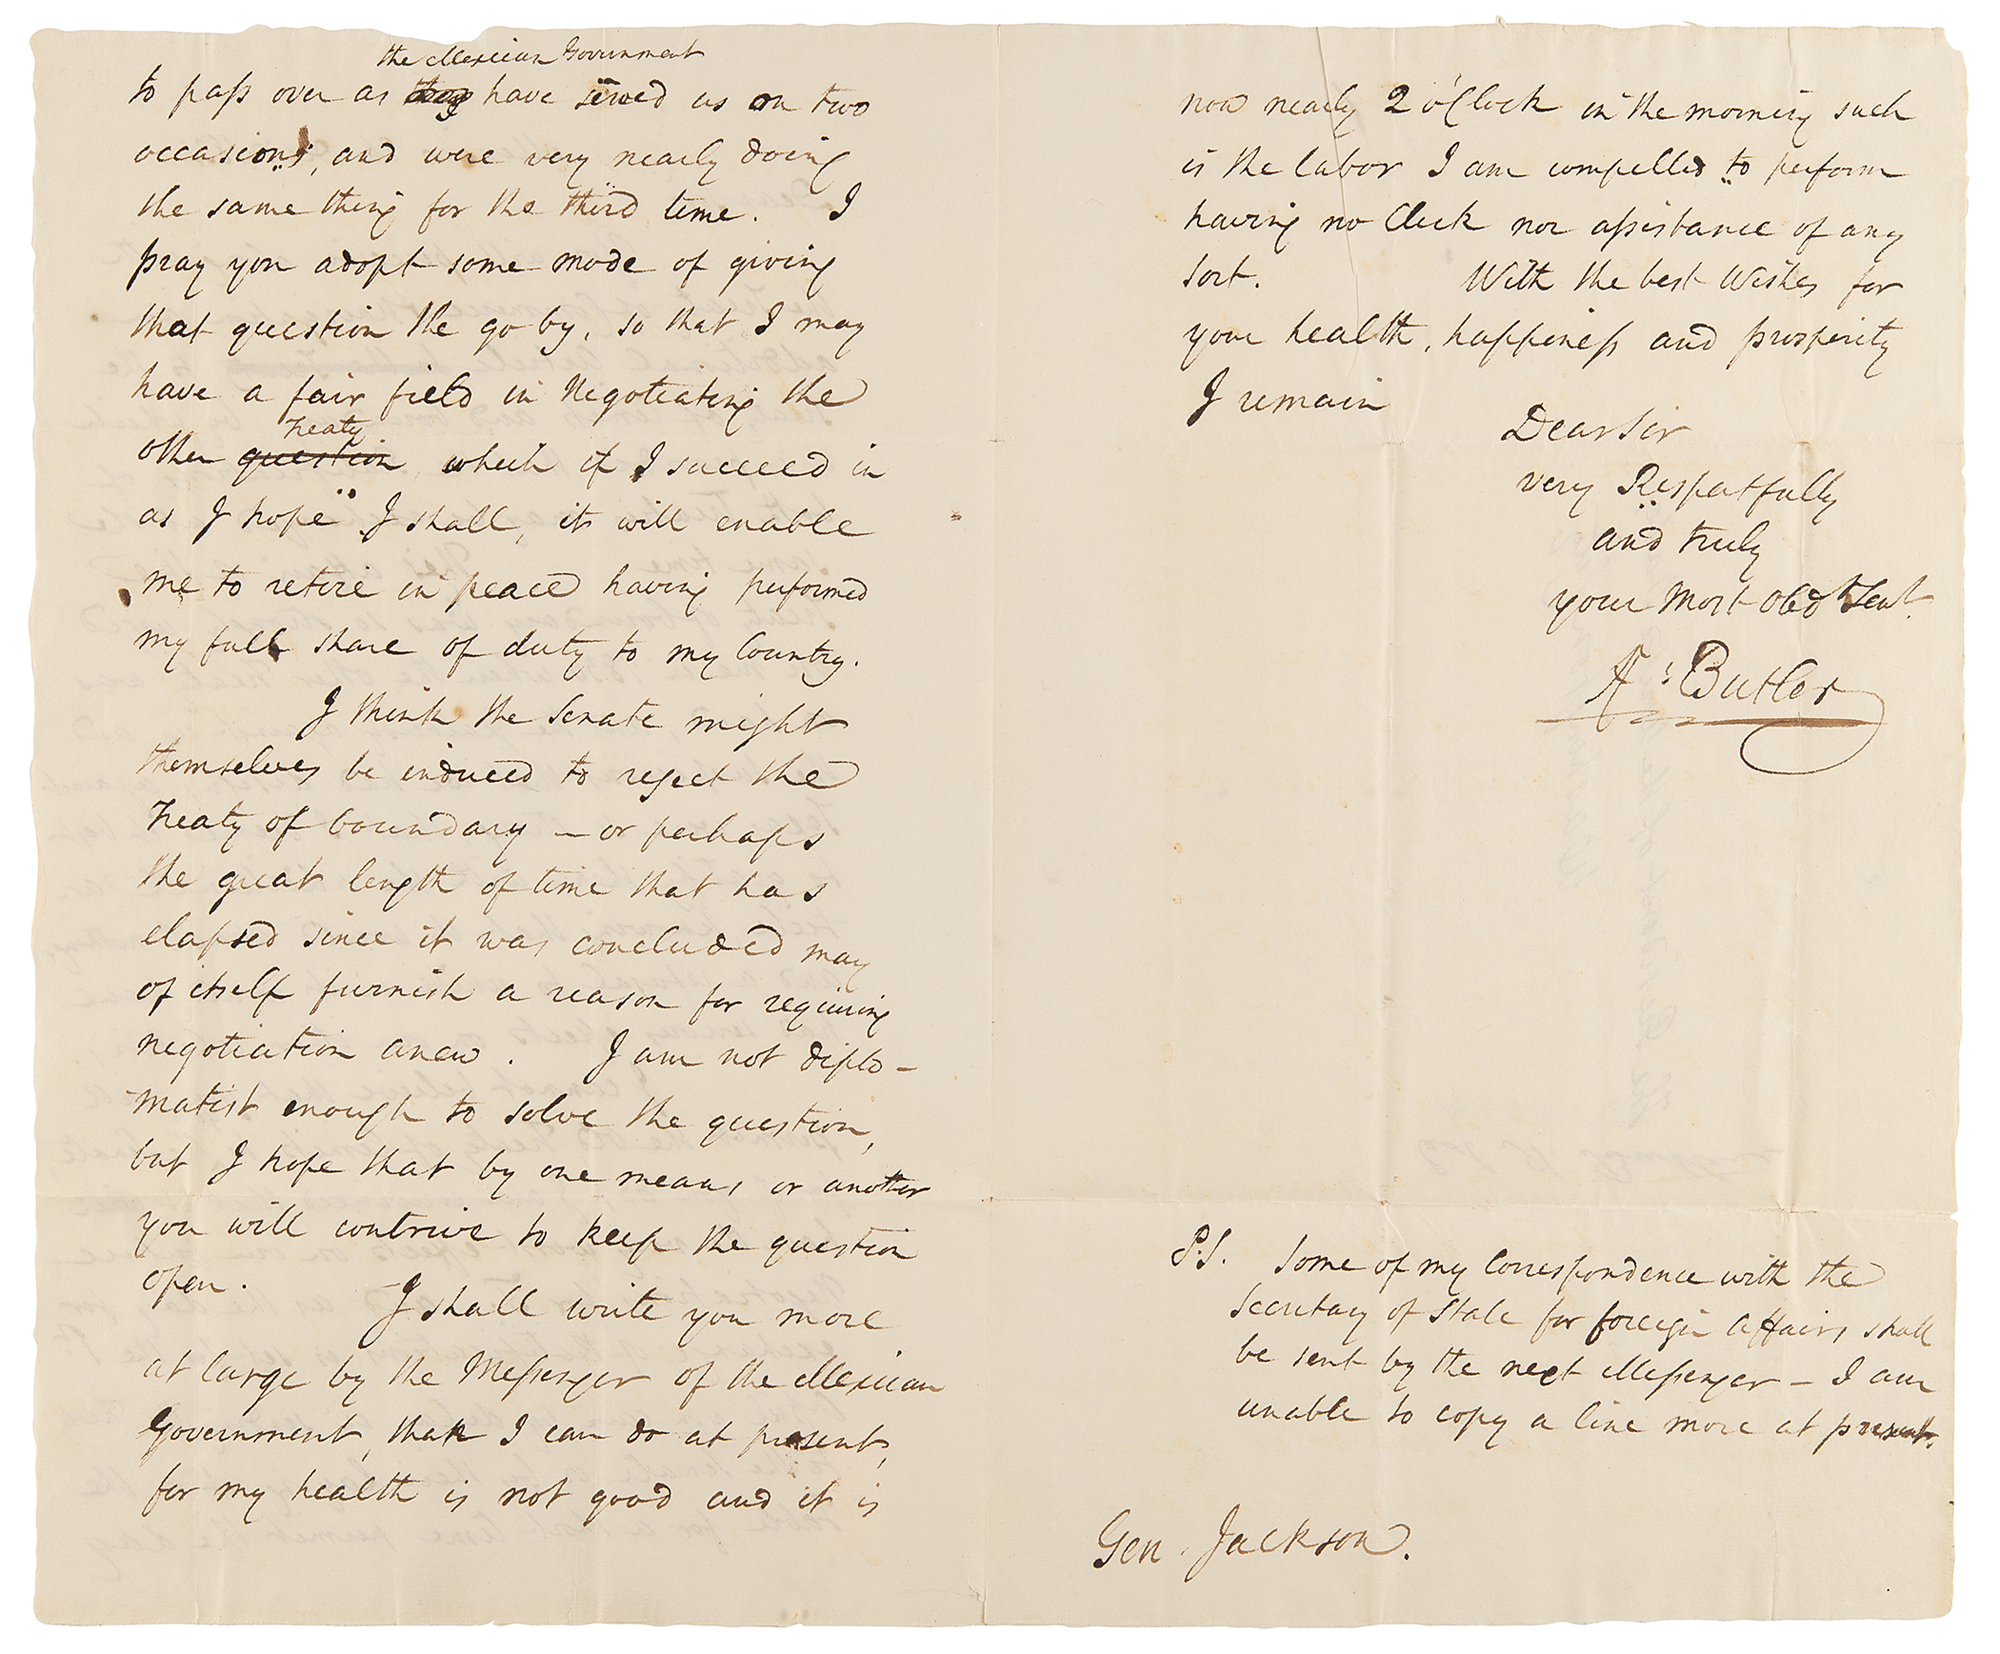 the Mexican Government
to pass over as they have served us on two
occasions, and were very nearly doing
the same thing for the third time. I
pray you adopt some mode of giving
that question the go by, so that I may
have a fair field in Negotiating the
treaty
other question, which if I succeed in
as I hope I shall, it will enable
me to retire in peace having performed
my full share of duty to my Country.
I think the Senate might
themselves be induced to reject the
Treaty of boundary — or perhaps
the great length of time that has
elapsed since it was concluded may
of itself furnish a reason for requiring
negotiation anew. I am not diplo-
matist enough to solve the question,
but I hope that by one means or another
you will contrive to keep the question
open. I shall write you more
at large by the Messenger of the Mexican
Government, than I can do at present,
for my health is not good and it is
now nearly 2 o'Clock in the morning such
is the labor I am compelled to perform
having no Clerk nor assistance of any
sort. With the best Wishes for
your health, happiness and prosperity
I remain
Dear Sir
very Respectfully
and truly
your Most Obdt Servt.
As Butler
P.S. Some of my Correspondence with the
Secretary of State for foreign Affairs shall
be sent by the next Messenger — I am
unable to copy a line more at present.
Gen. Jackson.